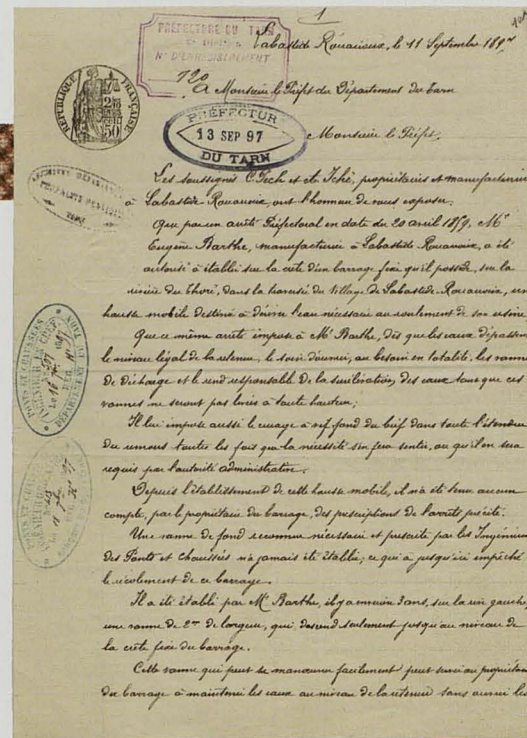 1
PRÉFECTURE DU TARN
N° D'ENREGISTREMENT
720
Labastide Rouairoux, le 11 Septembre 189
A Monsieur le Préfet du Département du Tarn
RÉPUBLIQUE FRANÇAISE
PRÉFECTUR
13 SEP 97
DU TARN
Monsieur le Préfet,
Les soussignés C. Pech et et Iché, propriétaires et manufacturier
à Labastide Rouairoux, ont l'honneur de vous exposer:
Que par un arrêté Préfectoral en date du 20 avril 1859, Mr
Eugène Barthe, manufacturier à Labastide Rouairoux, a été
autorisé à établir sur la crête d'un barrage fixe qu'il possède, sur la
rivière du Thoré, dans la traversée du village de Labastide-Rouairoux, une
hausse mobile destinée à dériver l'eau nécessaire au roulement de son usine
Que ce même arrêté impose à Mr Barthe, dès que les eaux dépassent
le niveau légal de la retenue, le soin d'ouvrir, au besoin en totalité, les vannes
de décharge et le rend responsable de la surélévation des eaux tant que ces
vannes ne seront pas levées à toute hauteur;
Il lui impose aussi le curage à vif fond du bief dans toute l'étendue
du remous toutes les fois que la nécessité s'en fera sentir, ou qu'il en sera
requis par l'autorité administrative.
Depuis l'établissement de cette hausse mobile, il n'a été tenu aucun
compte, par le propriétaire du barrage, des prescriptions de l'arrêté précité.
Une vanne de fond reconnue nécessaire et prescrite par les Ingénieurs
des Ponts et Chaussées n'a jamais été établie; ce qui a jusqu'ici empêché
le récolement de ce barrage.
Il a été établi par Mr Barthe, il y a environ 3 ans, sur la rive gauche,
une vanne de 2m de largeur, qui descend seulement jusqu'au niveau de
la crête fixe du barrage.
Cette vanne qui peut se manœuvrer facilement peut servir au propriétaire
du barrage à maintenir les eaux au niveau de la retenue sans ouvrir les